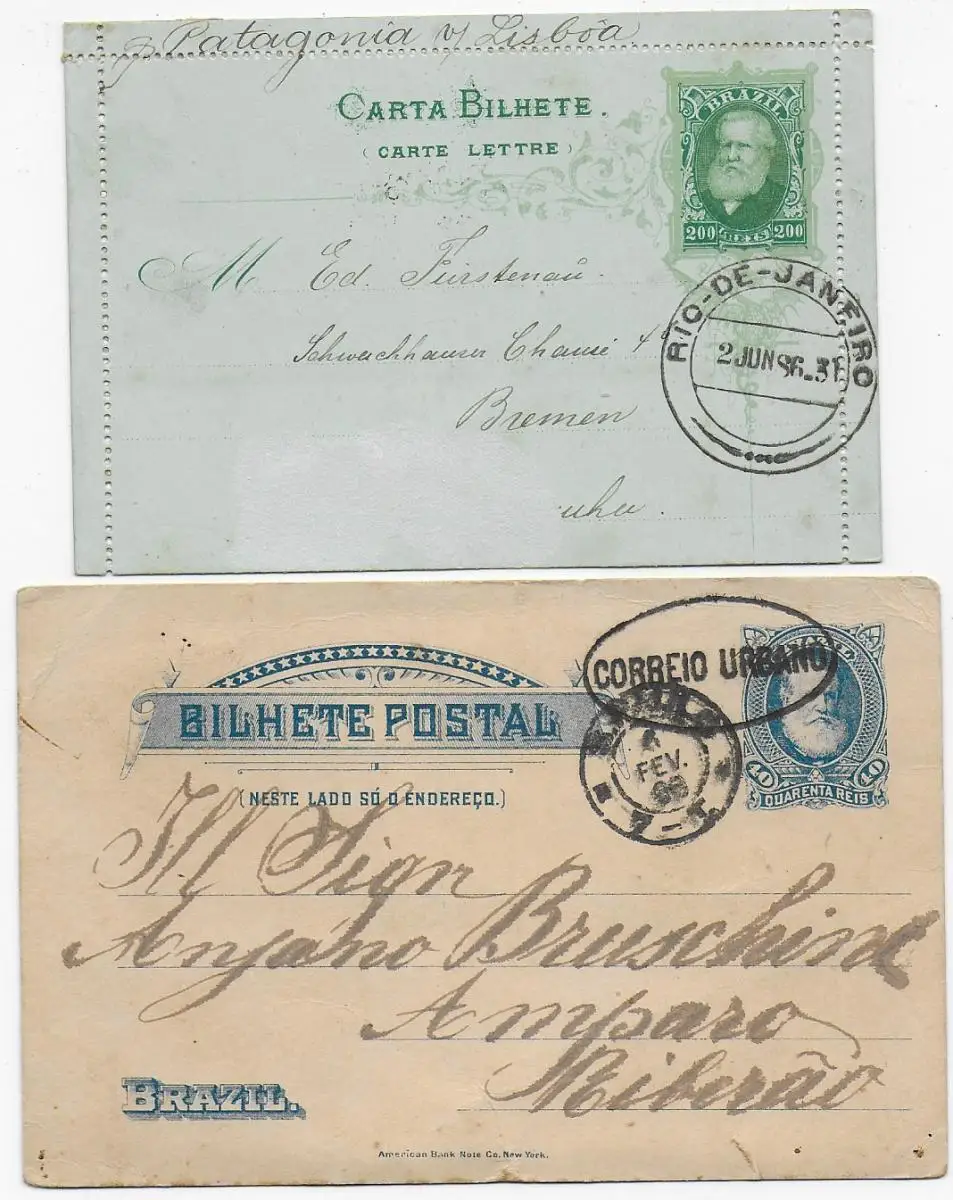 p Patagonia v/ Lisbôa
CARTA BILHETE.
(CARTE LETTRE)
BRAZIL
200 REIS 200
M Ed. Fürstenau.
Schwachhauser Chaussé 4
Bremen
RIO-DE-JANEIRO
2 JUN 86.31
CORREIO URBANO
BILHETE POSTAL
(NESTE LADO SÓ O ENDEREÇO.)
FEV.
40 40
QUARENTA REIS
Ill Sign
Anjano Bruschine
Amparo
Ribeirão
BRAZIL.
American Bank Note Co. New York.